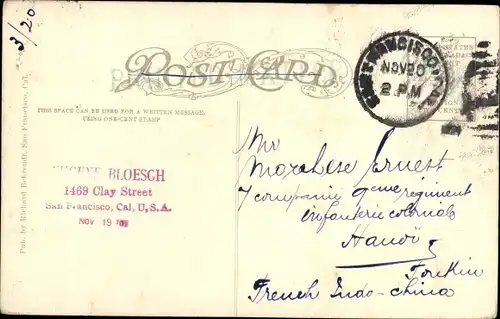 3/20
POST CARD
THIS SPACE CAN BE USED FOR A WRITTEN MESSAGE,
USING ONE-CENT STAMP
SAN FRANCISCO
NOV 20
2 PM
Pub. by Richard Behrendt, San Francisco, Cal.
BLOESCH
1469 Clay Street
San Francisco, Cal, U.S.A.
NOV 19
Mr
Marchese Ernest
7 companie 9eme regiment
infanterie coloniale
Hanoï
Tonkin
French Indo-china